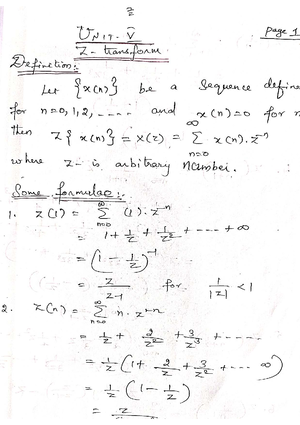 z
UNIT - V
page 1
Z - transform
Definition:
Let {x(n)} be a sequence define
for n=0,1,2, ---- and x(n)=0 for n
then Z{x(n)} = X(z) = ∞Σn=0 x(n). z^-n
where z- is arbitrary number.
Some formulae:
1. Z(1) = ∞Σn=0 (1). z^-n
= 1 + 1/z + 1/z^2 + ---- + ∞
= (1 - 1/z)^-1
= z/z-1 for 1/|z| < 1
2. Z(n) = ∞Σn=0 n. z^-n
= 1/z + 2/z^2 + 3/z^3 + ----
= 1/z (1 + 2/z + 3/z^2 + --- ∞)
= 1/z (1 - 1/z)
= z